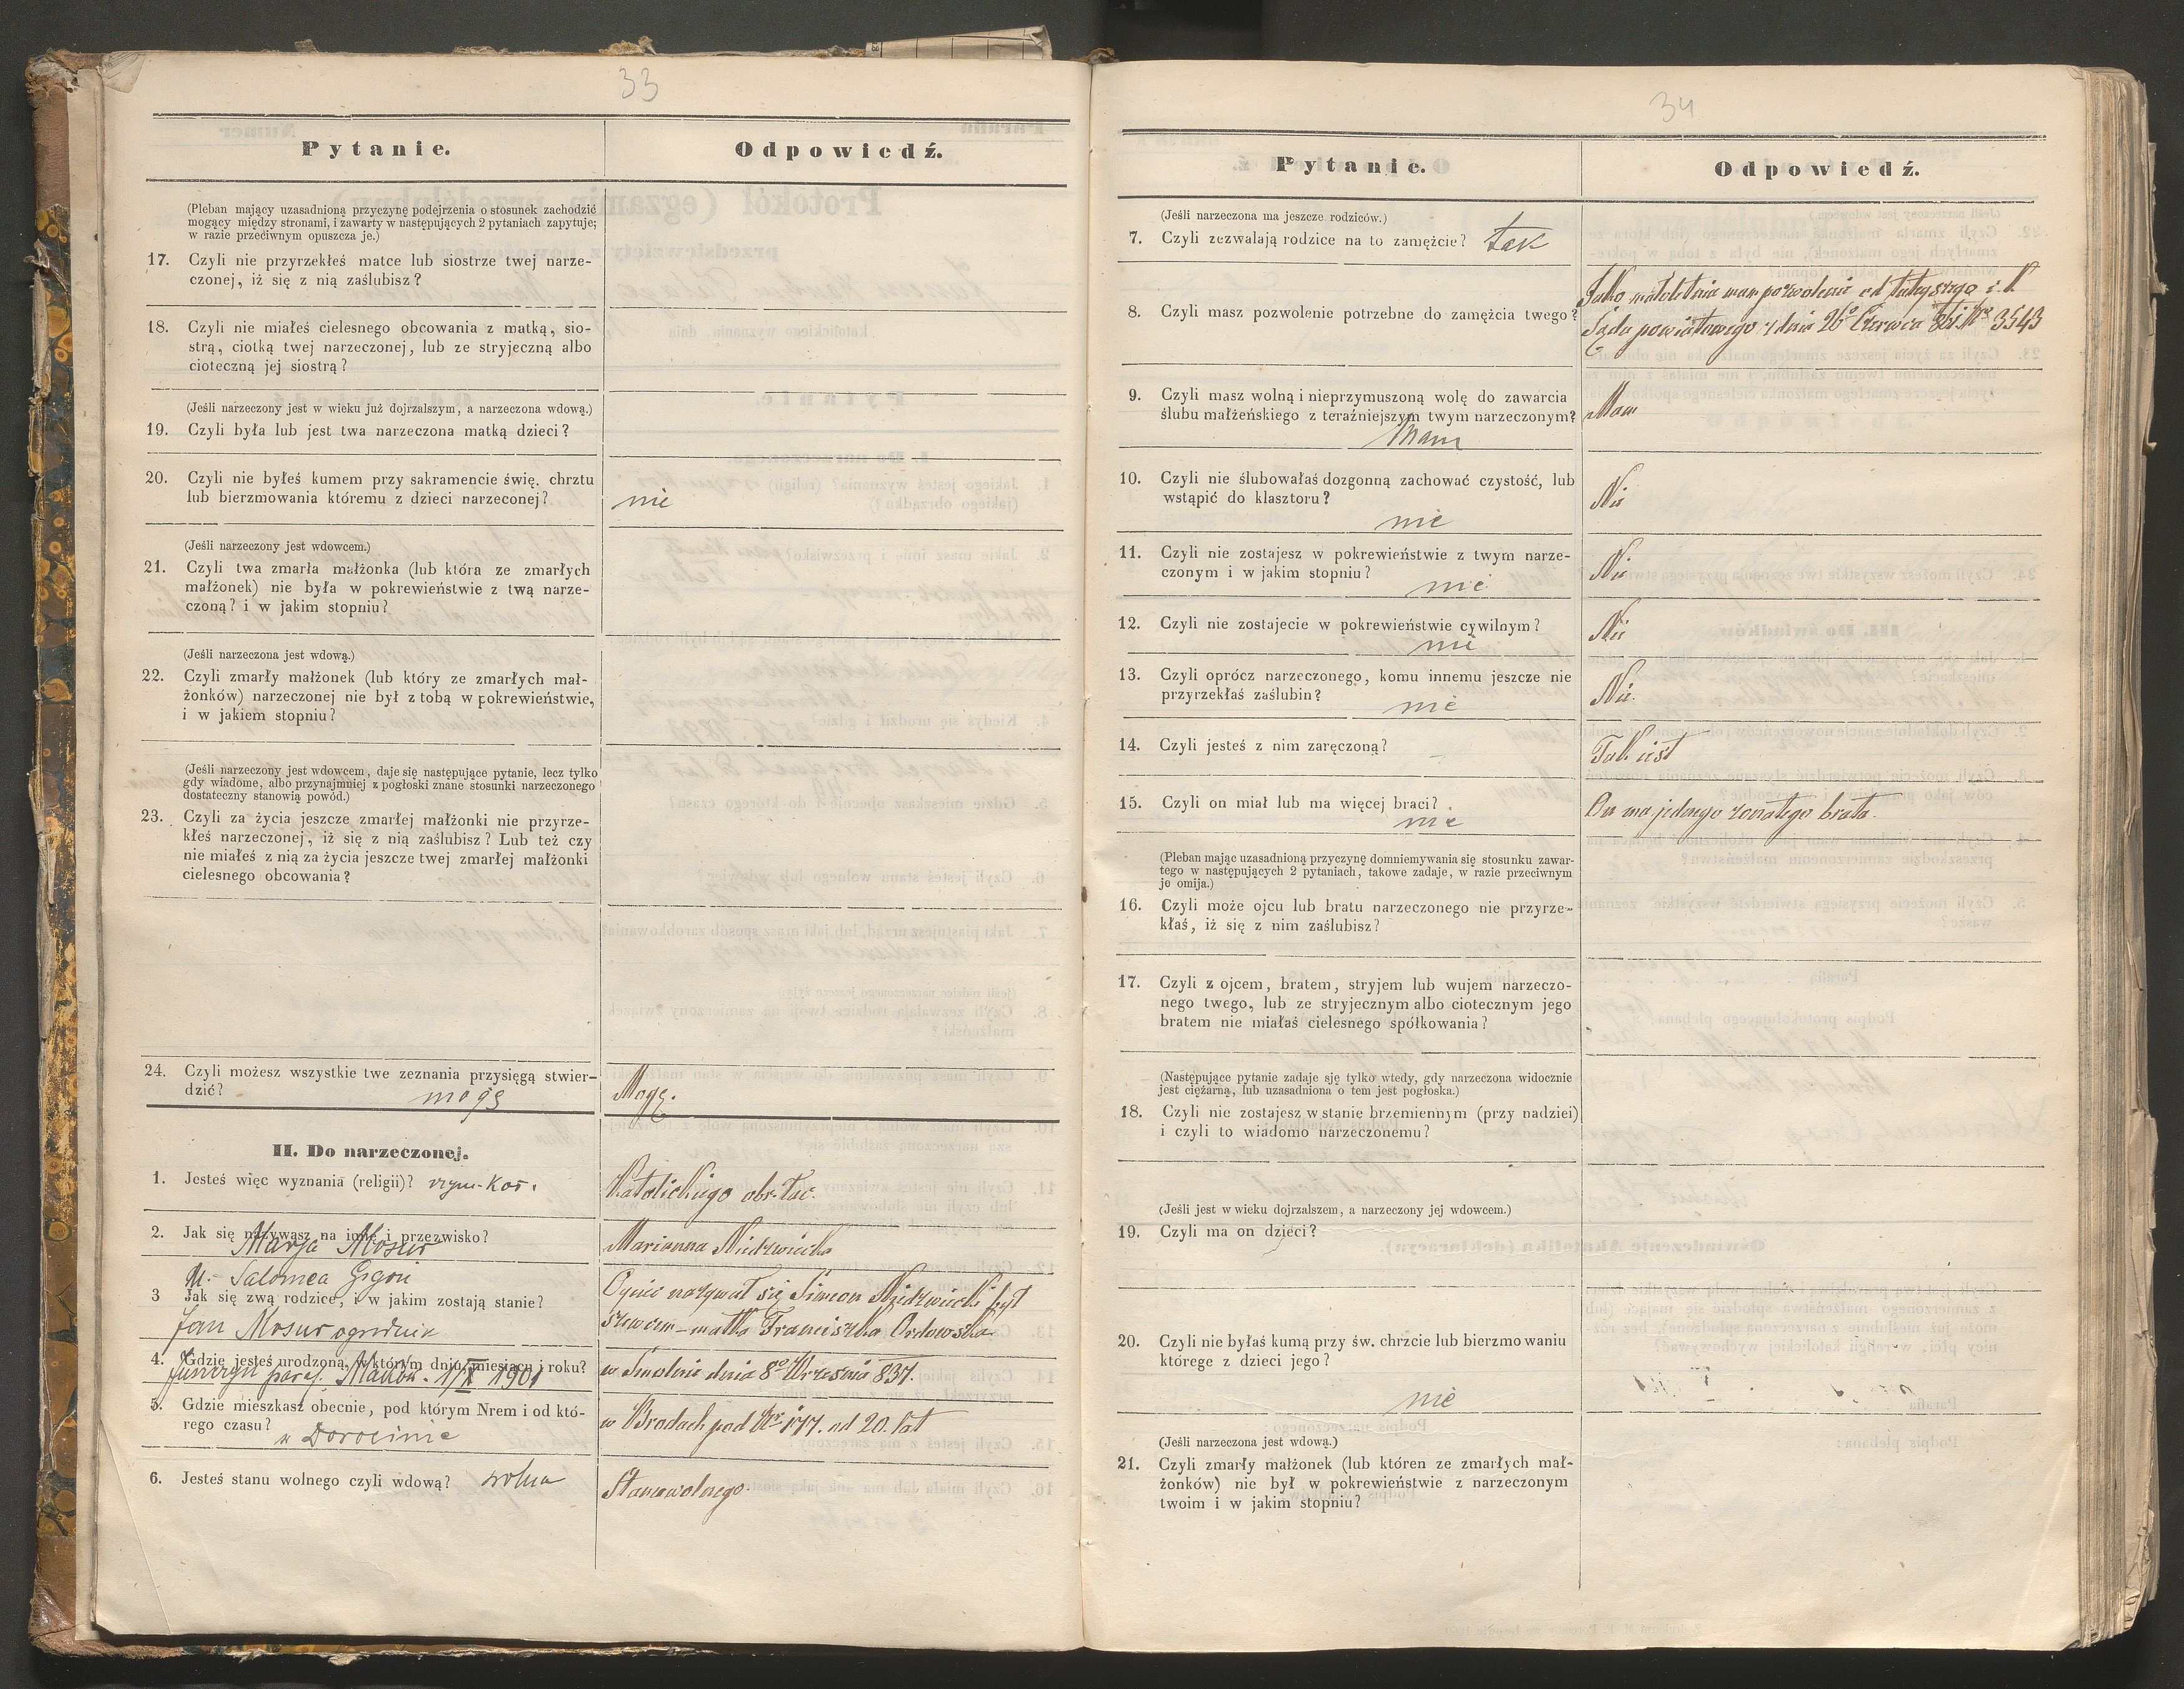 33
Pytanie.
Odpowiedź.
(Pleban mający uzasadnioną przyczynę podejrzenia o stosunek zachodzić
mogący między stronami, i zawarty w następujących 2 pytaniach zapytuje;
w razie przeciwnym opuszcza je.)
17. Czyli nie przyrzekłeś matce lub siostrze twej narze-
czonej, iż się z nią zaślubisz?
18. Czyli nie miałeś cielesnego obcowania z matką, sio-
strą, ciotką twej narzeczonej, lub ze stryjeczną albo
cioteczną jej siostrą?
(Jeśli narzeczony jest w wieku już dojrzalszym, a narzeczona wdową.)
19. Czyli była lub jest twa narzeczona matką dzieci?
20. Czyli nie byłeś kumem przy sakramencie świę. chrztu
lub bierzmowania któremu z dzieci narzeconej?
nie
(Jeśli narzeczony jest wdowcem.)
21. Czyli twa zmarła małżonka (lub która ze zmarłych
małżonek) nie była w pokrewieństwie z twą narze-
czoną? i w jakim stopniu?
(Jeśli narzeczona jest wdową.)
22. Czyli zmarły małżonek (lub który ze zmarłych mał-
żonków) narzeczonej nie był z tobą w pokrewieństwie,
i w jakiem stopniu?
(Jeśli narzeczony jest wdowcem, daje się następujące pytanie, lecz tylko
gdy wiadome, albo przynajmniej z pogłoski znane stosunki narzeczonego
dostateczny stanowią powód.)
23. Czyli za życia jeszcze zmarłej małżonki nie przyrze-
kłeś narzeczonej, iż się z nią zaślubisz? Lub też czy
nie miałeś z nią za życia jeszcze twej zmarłej małżonki
cielesnego obcowania?
24. Czyli możesz wszystkie twe zeznania przysięgą stwier-
dzić? mogę
Mogę.
II. Do narzeczonej.
1. Jesteś więc wyznania (religii)? rzym-kat.
Katolickiego obr. łac.
2. Jak się nazywasz na imię i przezwisko?
Marja Mosur
Marianna Niedzwiecka
M. Salomea
3 Jak się zwą rodzice, i w jakim zostają stanie?
Jan Mosur ogrodnik
Ojciec nazywał się Simeon Niedzwiecki był
szewcem – matka Franciszka Orłowska
4. Gdzie jesteś urodzoną, w którym dniu, miesiącu i roku?
paraf. Maków. 17/X 1901
w Smolnie dnia 8º Września 837.
5. Gdzie mieszkasz obecnie, pod którym Nrem i od któ-
rego czasu? w Dorocinie
w Brodach pod Nr 177. od 20. lat
6. Jesteś stanu wolnego czyli wdową? wolna
Stanu wolnego.
34
Pytanie.
Odpowiedź.
(Jeśli narzeczona ma jeszcze rodziców.)
7. Czyli zezwalają rodzice na to zamężcie? tak
8. Czyli masz pozwolenie potrzebne do zamężcia twego?
Jako małoletnia mam pozwolenie od tutejszego c. k.
Sądu powiatowego z dnia 26º Czerwca 861. Nr 3543
9. Czyli masz wolną i nieprzymuszoną wolę do zawarcia
ślubu małżeńskiego z teraźniejszym twym narzeczonym?
Mam
Mam
10. Czyli nie ślubowałaś dozgonną zachować czystość, lub
wstąpić do klasztoru?
nie
Nie
11. Czyli nie zostajesz w pokrewieństwie z twym narze-
czonym i w jakim stopniu?
nie
Nie
12. Czyli nie zostajecie w pokrewieństwie cywilnym?
nie
Nie
13. Czyli oprócz narzeczonego, komu innemu jeszcze nie
przyrzekłaś zaślubin?
nie
Nie.
14. Czyli jesteś z nim zaręczoną?
Tak jest
15. Czyli on miał lub ma więcej braci?
nie
On ma jednego żonatego brata.
(Pleban mając uzasadnioną przyczynę domniemywania się stosunku zawar-
tego w następujących 2 pytaniach, takowe zadaje, w razie przeciwnym
je omija.)
16. Czyli może ojcu lub bratu narzeczonego nie przyrze-
kłaś, iż się z nim zaślubisz?
17. Czyli z ojcem, bratem, stryjem lub wujem narzeczo-
nego twego, lub ze stryjecznym albo ciotecznym jego
bratem nie miałaś cielesnego spółkowania?
(Następujące pytanie zadaje się tylko wtedy, gdy narzeczona widocznie
jest ciężarną, lub uzasadniona o tem jest pogłoska.)
18. Czyli nie zostajesz w stanie brzemiennym (przy nadziei)
i czyli to wiadomo narzeczonemu?
(Jeśli jest w wieku dojrzalszem, a narzeczony jej wdowcem.)
19. Czyli ma on dzieci?
20. Czyli nie byłaś kumą przy św. chrzcie lub bierzmo waniu
którege z dzieci jego?
nie
(Jeśli narzeczona jest wdową.)
21. Czyli zmarły małżonek (lub któren ze zmarłych mał-
żonków) nie był w pokrewieństwie z narzeczonym
twoim i w jakim stopniu?